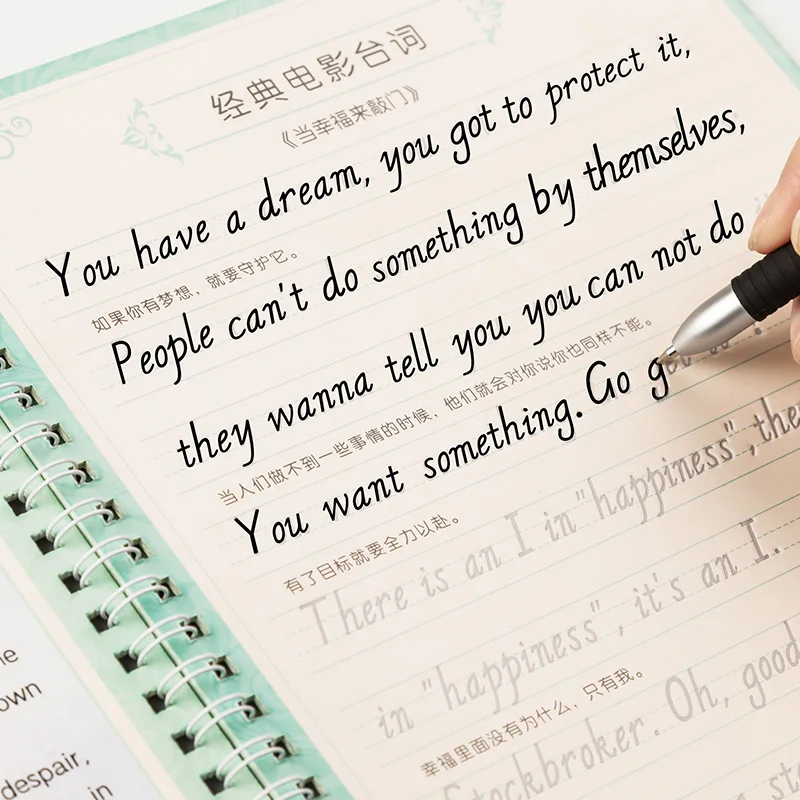 经典电影台词
《当幸福来敲门》
You have a dream, you got to protect it,
如果你有梦想，就要守护它。
People can't do something by themselves,
they wanna tell you you can not do
当人们做不到一些事情的时候，他们就会对你说你也同样不能。
You want something. Go get
有了目标就要全力以赴。
There is an I in "happiness", the
in "happiness", it's an I.
幸福里面没有为什么，只有我。
Stockbroker. Oh, good
own
despair,
in